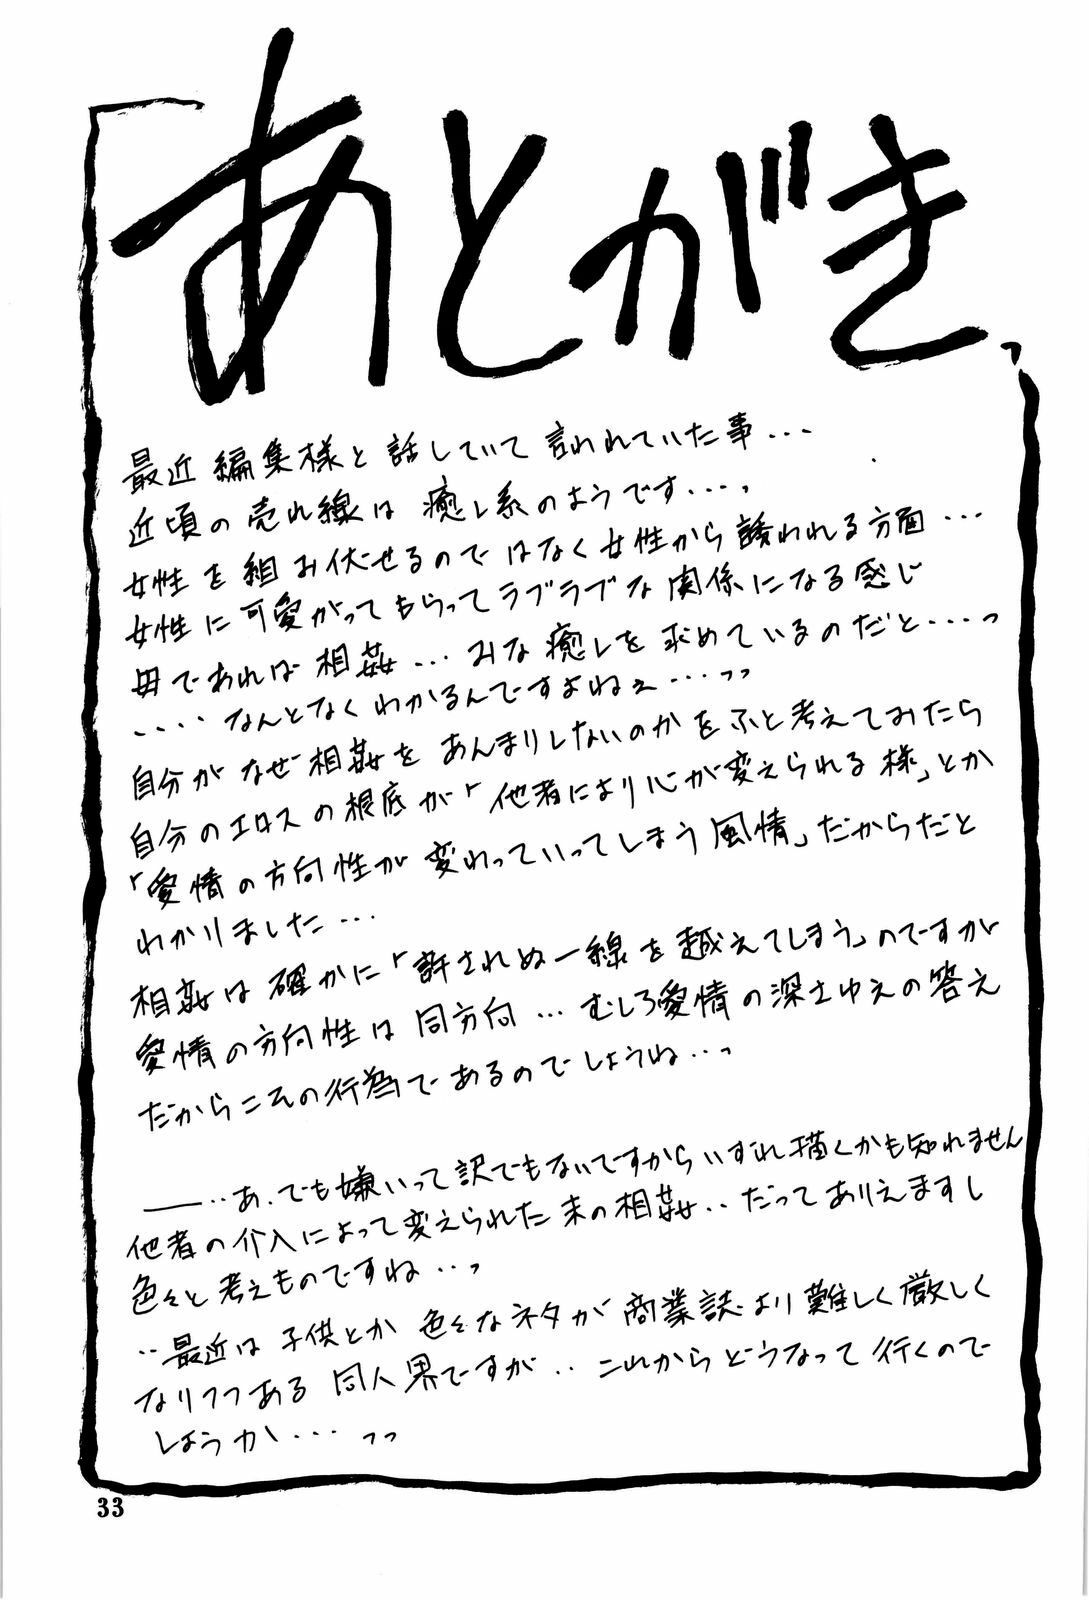 あとがき
最近編集様と話していて言われていた事...
近頃の売れ線は癒し系のようです....っ
女性を組み伏せるのではなく女性から誘われる方面...
女性に可愛がってもらってラブラブな関係になる感じ
母であれば相姦...みな癒しを求めているのだと....っ
....なんとなくわかるんですよねぇ...っっ
自分がなぜ相姦をあんまりしないのかをふと考えてみたら
自分のエロスの根底が「他者により心が変えられる様」とか
「愛情の方向性が変わっていってしまう風情」だからだと
わかりました...
相姦は確かに「許されぬ一線を越えてしまう」のですが
愛情の方向性は同方向...むしろ愛情の深さゆえの答え
だからこその行為であるのでしょうね...っ
――..あ、でも嫌いって訳でもないですからいずれ描くかも知れません
他者の介入によって変えられた末の相姦..だってありえますし
色々と考えものですね...っ
..最近は子供とか色々なネタが商業誌より難しく厳しく
なりつつある同人界ですが..これからどうなって行くので
しょうか...っっ
33